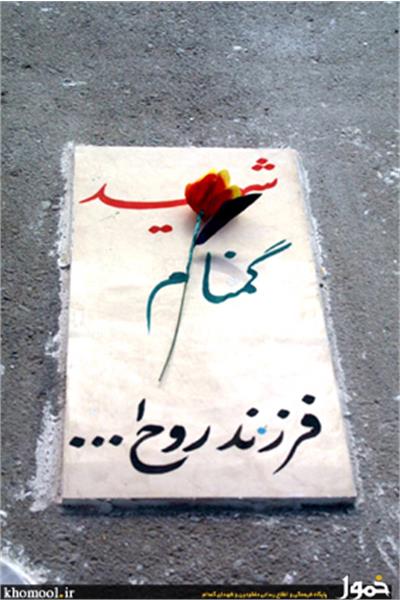 شهید
گمنام
فرزند روح ا...
خمول
پایگاه فرهنگی و اطلاع رسانی مفقودین و شهدای گمنام
khomool.ir